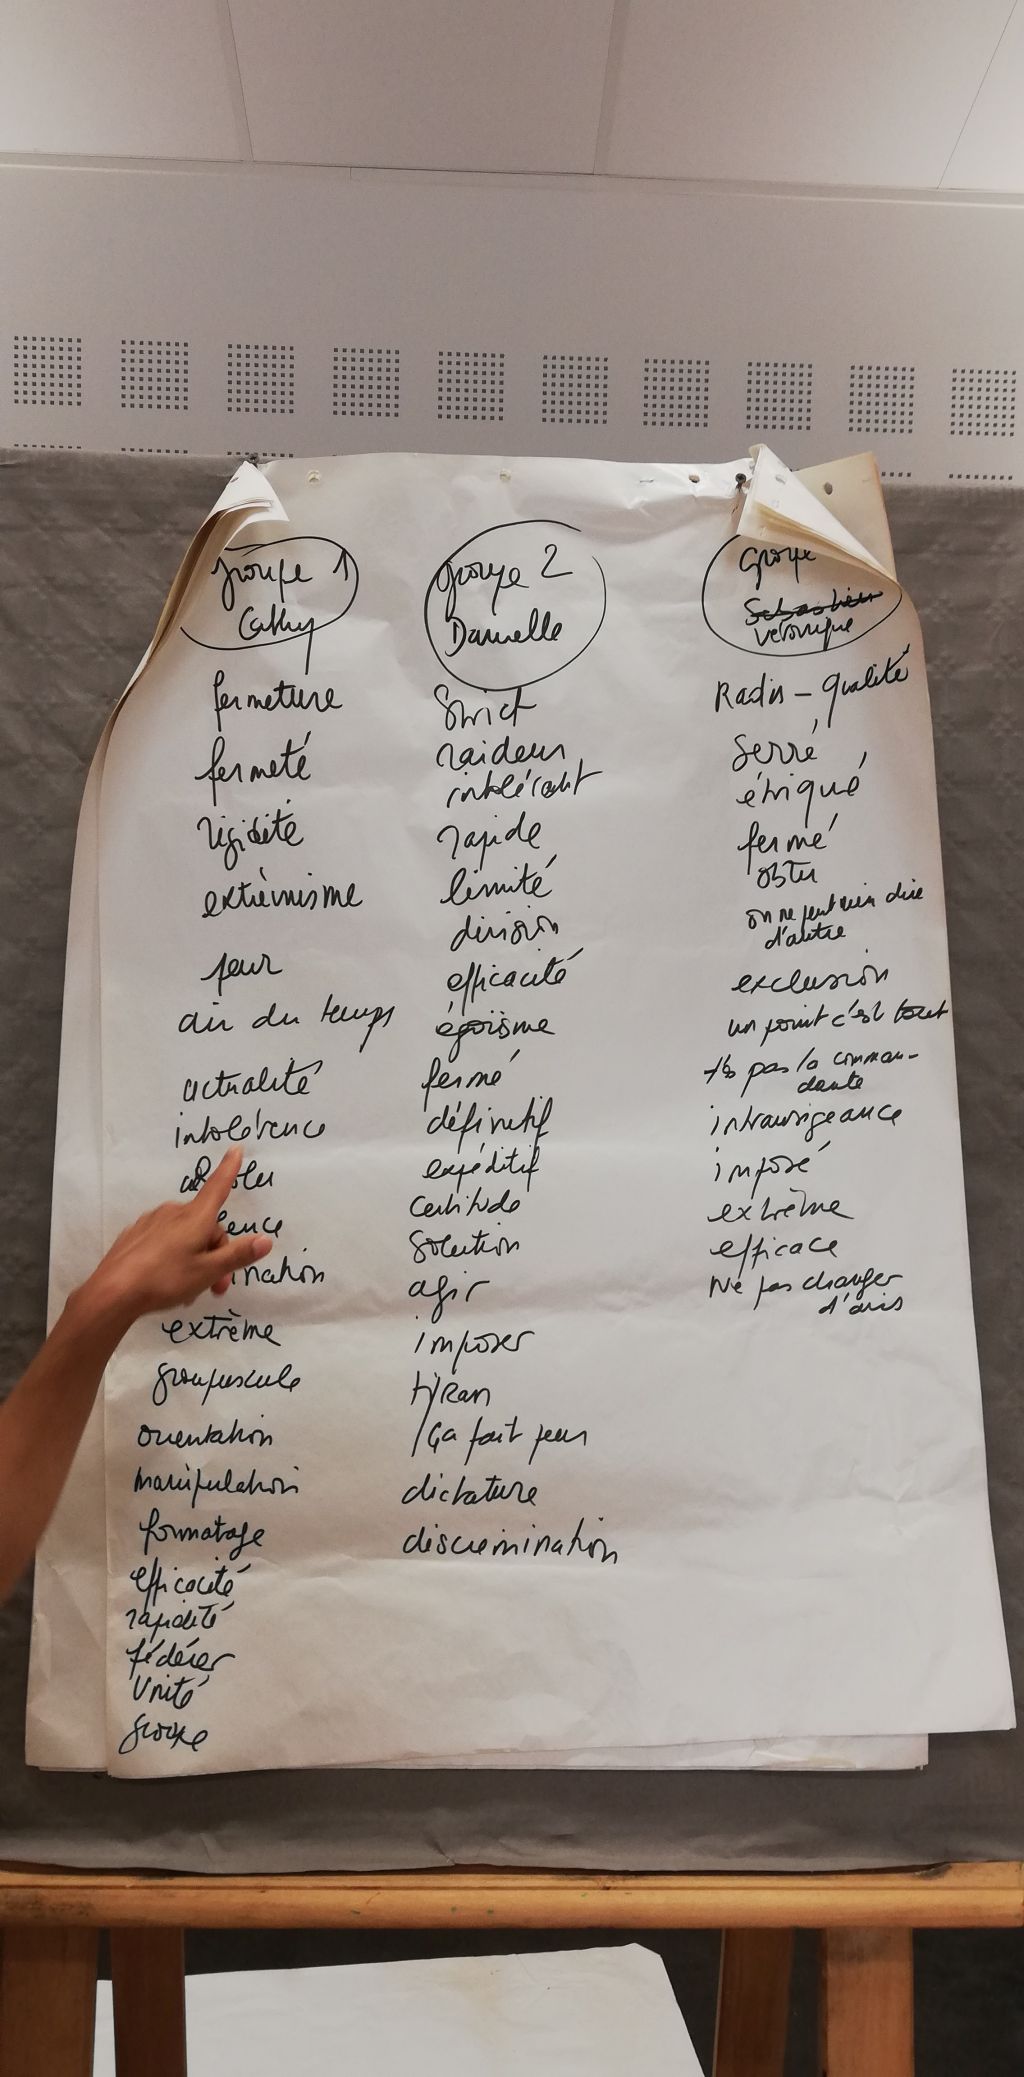 Groupe 1
Cathy
fermeture
fermeté
rigidité
extrèmisme
peur
air du temps
actualité
intolérence
extrème
groupuscule
orientation
manipulation
formatage
efficacité
rapidité
fédérer
Unité
groupe
Groupe 2
Danielle
Strict
raideur
intolérant
rapide
limité
division
efficacité
égoïsme
fermé
définitif
expéditif
certitude
Solution
agir
imposer
tyran
/ça fait peur
dictature
discrimination
Groupe
Sebastien
Véronique
Radis - qualité
Serré
étriqué
fermé
obtu
on ne peut rien dire
d'autre
exclusion
un point c'est tout
pas la comman-
dante
intransigeance
imposé
extrème
efficace
Ne pas changer
d'avis